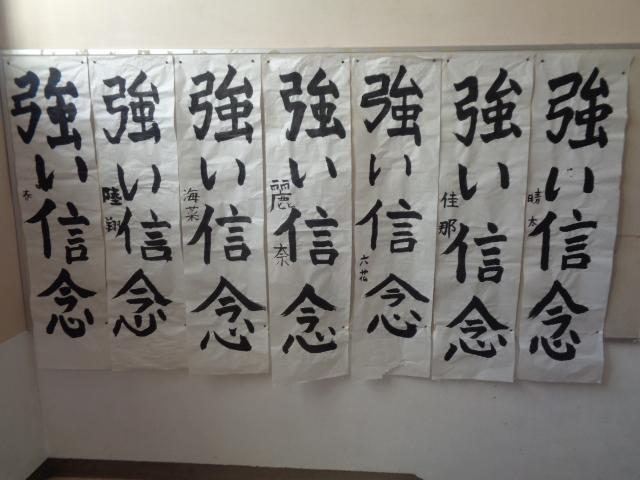 強い信念
晴太
強い信念
佳那
強い信念
六花
強い信念
麗奈
強い信念
海菜
強い信念
陸翔
強い信念